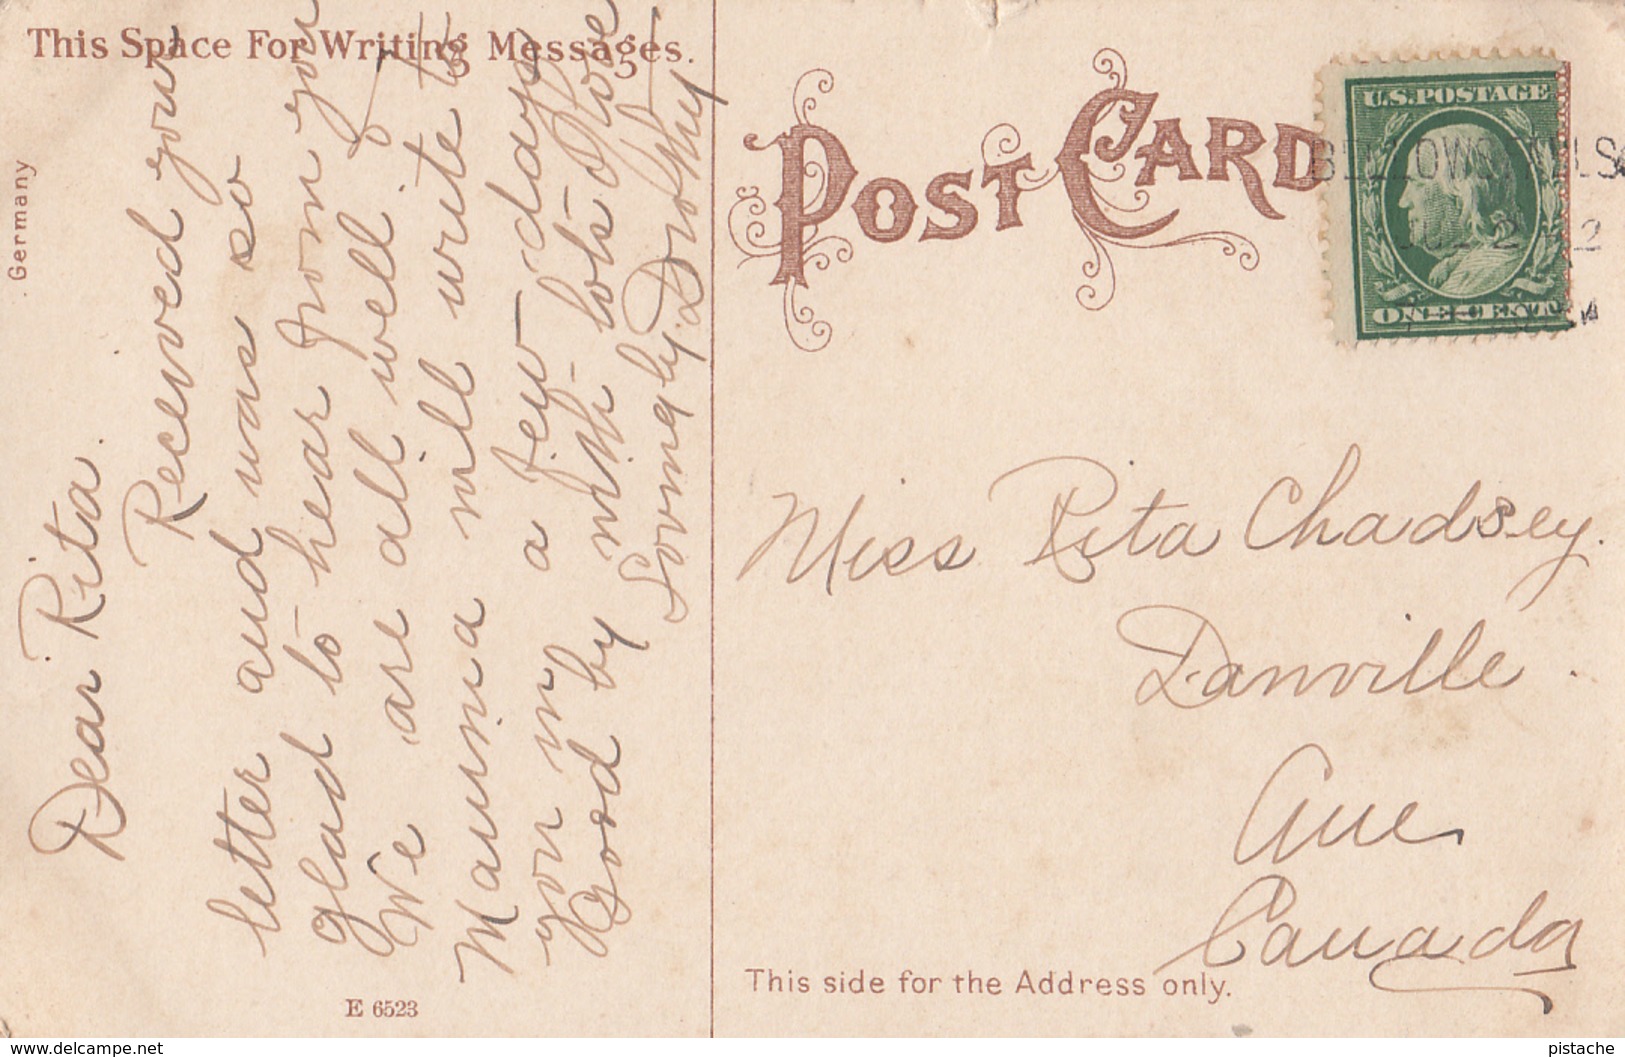 This Space For Writing Messages.
Germany
Dear Rita.
Received your
letter and was so
glad to hear from you
We are all well.
Mamma will write to
you in a few days
Good by with lots Love
Lovingly Dorothy
E 6523
POST CARD
U.S. POSTAGE
ONE CENT
BELLOWS
Miss Rita Chadsey.
Danville.
Que
Canada
This side for the Address only.
www.delcampe.net
pistache